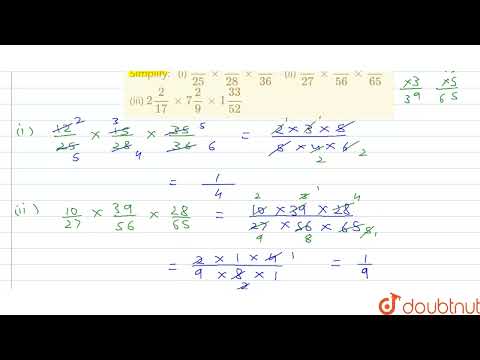 Simplify: (i) /25 × /28 × /36 (ii) /27 × /56 × /65
(iii) 2 2/17 × 7 2/9 × 1 33/52
×3/39 ×5/65
(i) 12/25 × 15/28 × 35/36 = 2 × 3 × 5 / 5 × 4 × 6
= 1/4
(ii) 10/27 × 39/56 × 28/65 = 10 × 39 × 28 / 27 × 56 × 65
= 2 × 1 × 4 / 9 × 8 × 1 = 1/9
doubtnut